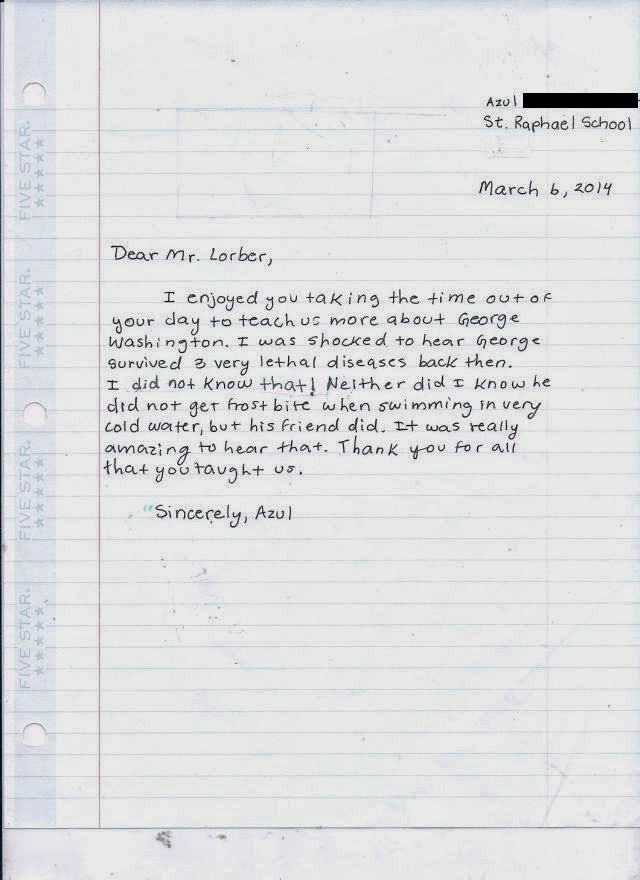 Azul
St. Raphael School
March 6, 2014
Dear Mr. Lorber,
I enjoyed you taking the time out of
your day to teach us more about George
Washington. I was shocked to hear George
survived 3 very lethal diseases back then.
I did not know that! Neither did I know he
did not get frostbite when swimming in very
cold water, but his friend did. It was really
amazing to hear that. Thank you for all
that you taught us.
Sincerely, Azul
FIVE STAR.
FIVE STAR.
FIVE STAR.
FIVE STAR.